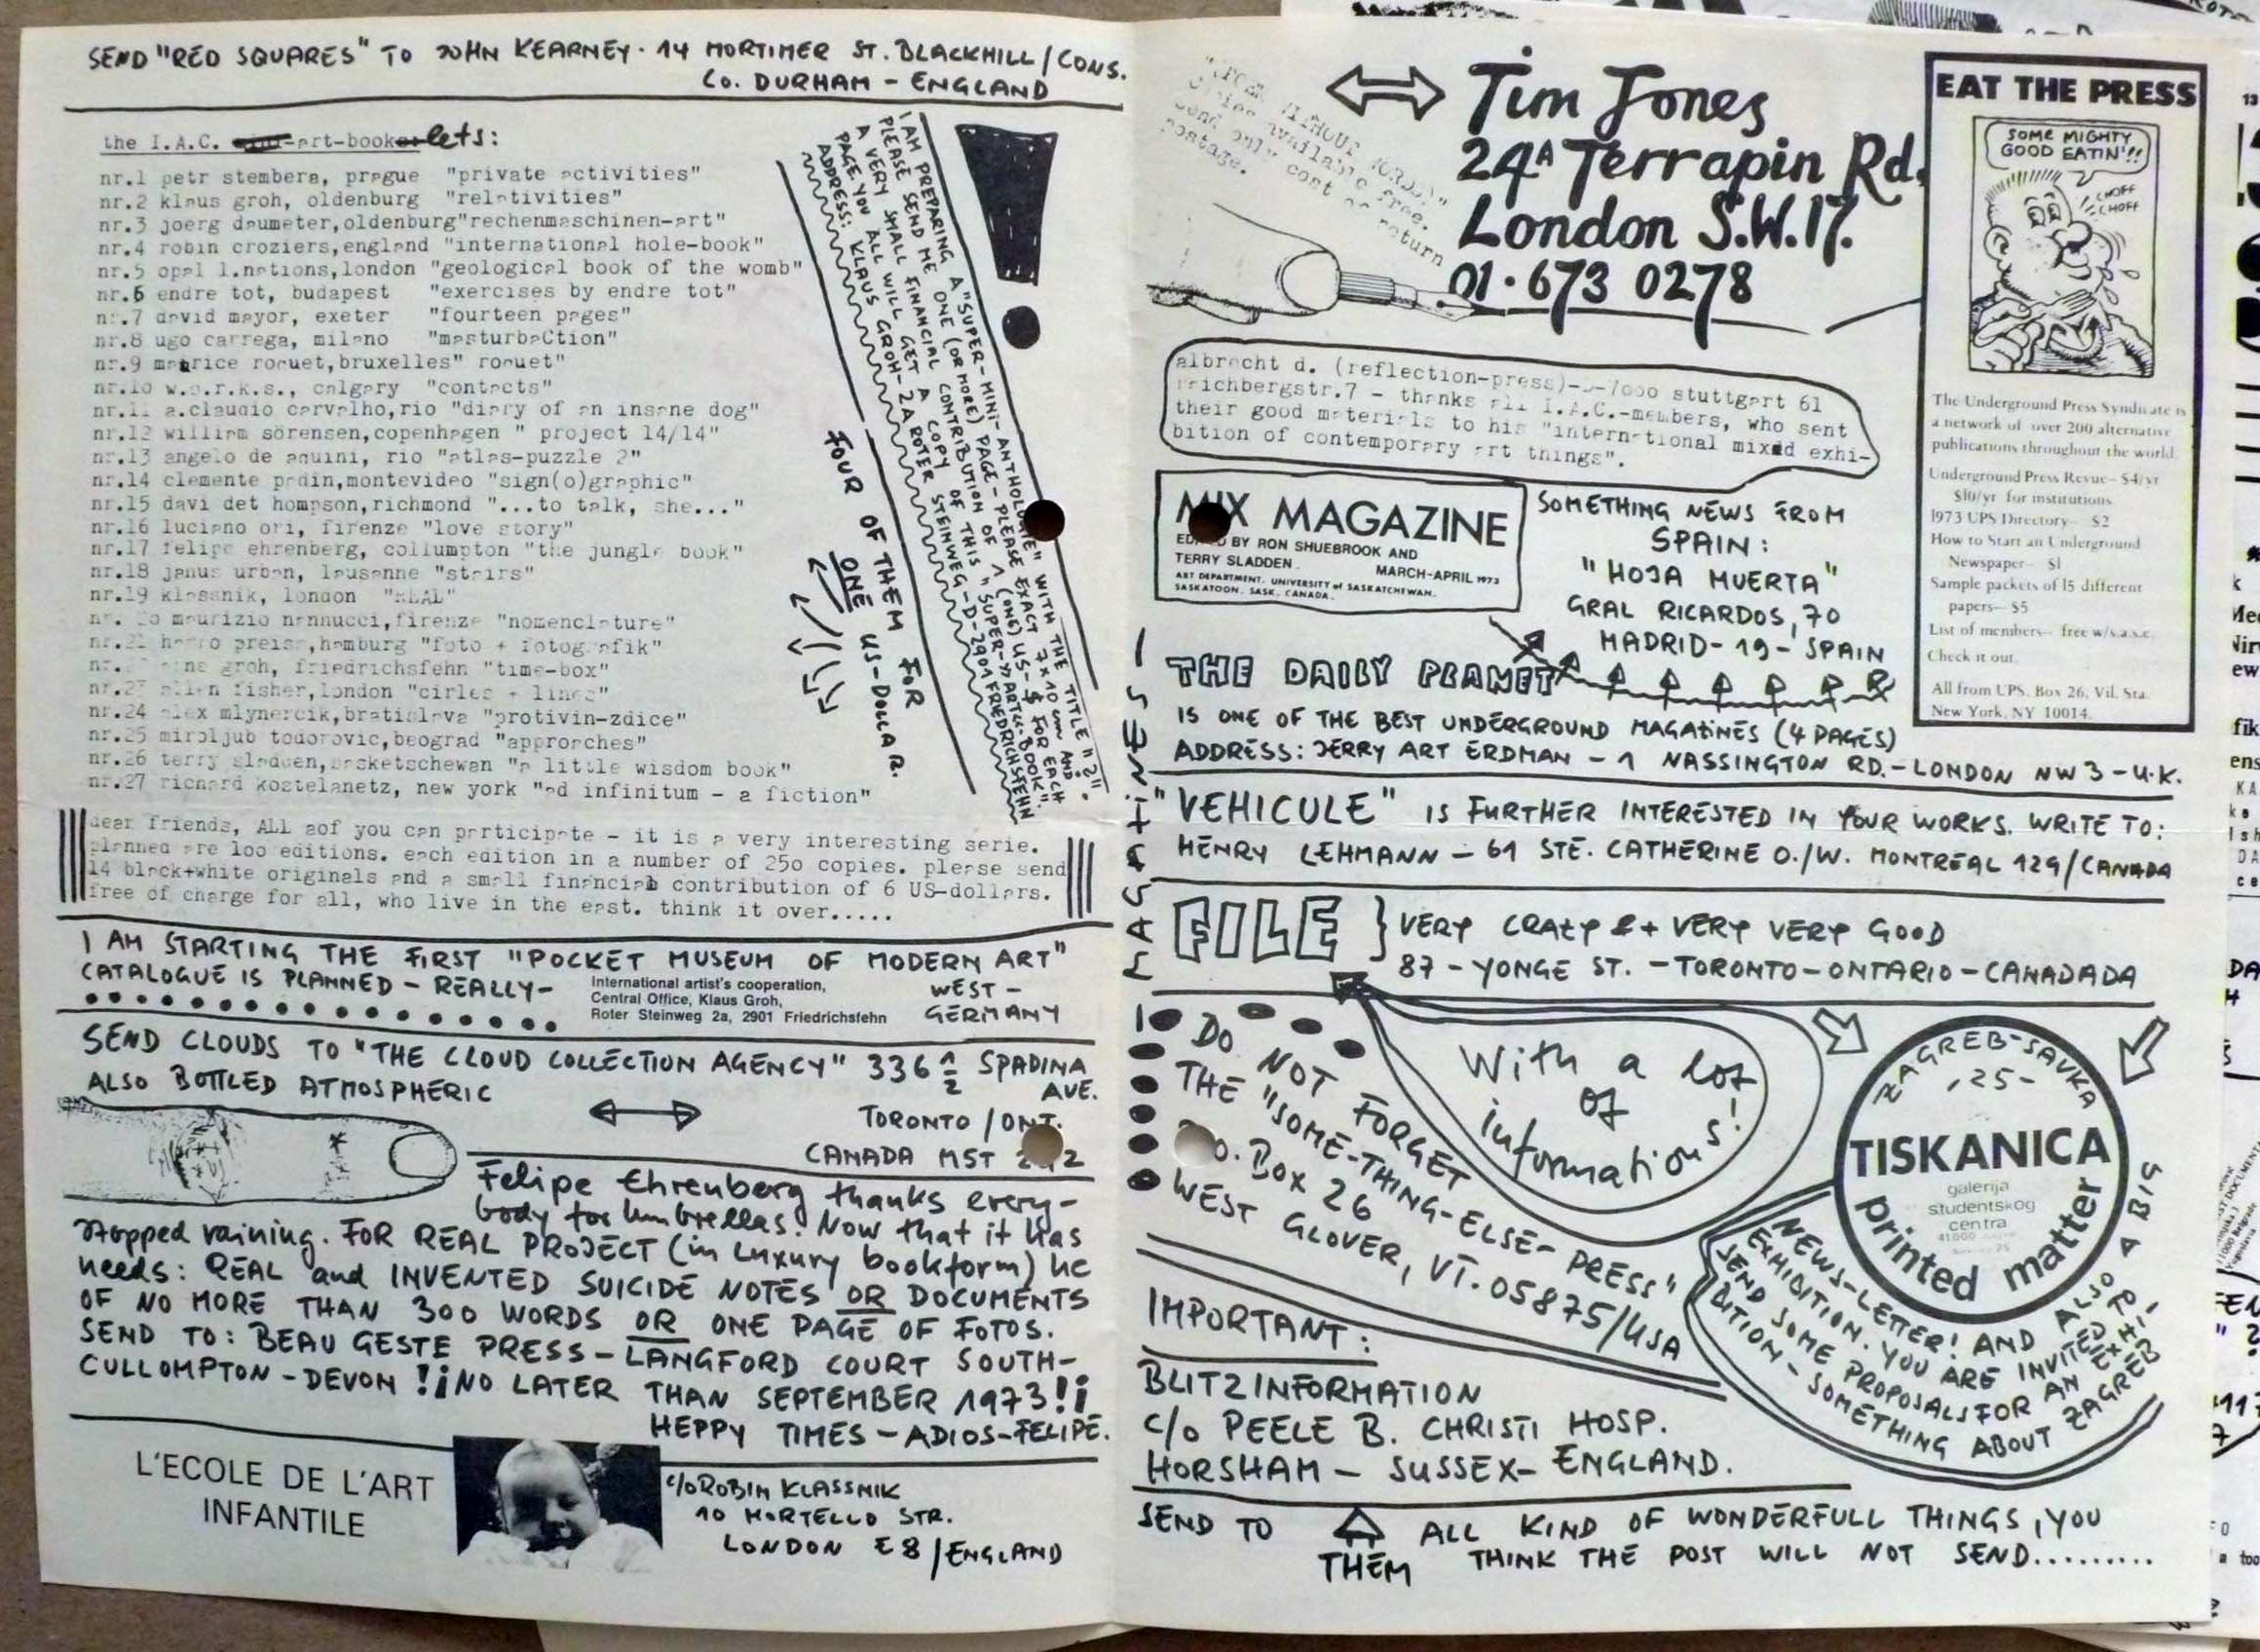 SEND "RED SQUARES" TO JOHN KEARNEY · 14 MORTIMER ST. BLACKHILL / CONS.
CO. DURHAM - ENGLAND
the I.A.C. -art-booklets:
nr.1 petr stembera, prague "private activities"
nr.2 klaus groh, oldenburg "relativities"
nr.3 joerg daumeter,oldenburg"rechenmaschinen-art"
nr.4 robin croziers,england "international hole-book"
nr.5 opal l.nations,london "geological book of the womb"
nr.6 endre tot, budapest "exercises by endre tot"
nr.7 david mayor, exeter "fourteen pages"
nr.8 ugo carrega, milano "masturbaCtion"
nr.9 maurice roquet,bruxelles" roquet"
nr.10 w.o.r.k.s., calgary "contacts"
nr.11 a.claudio carvalho,rio "diary of an insane dog"
nr.12 william sörensen,copenhagen " project 14/14"
nr.13 angelo de aquini, rio "atlas-puzzle 2"
nr.14 clemente padin,montevideo "sign(o)graphic"
nr.15 davi det hompson,richmond "...to talk, she..."
nr.16 luciano ori, firenze "love story"
nr.17 felipe ehrenberg, collumpton "the jungle book"
nr.18 janus urban, lausanne "stairs"
nr.19 klassnik, london "REAL"
nr. 20 maurizio nannucci,firenze "nomenclature"
nr.21 preiss,hamburg "foto + fotografik"
nr. groh, friedrichsfehn "time-box"
nr.23 allen fisher,london "cirles + lines"
nr.24 alex mlynarcik,bratislava "protivin-zdice"
nr.25 miroljub todorovic,beograd "approaches"
nr.26 terry sladden,sasketschewan "a little wisdom book"
nr.27 richard kostelanetz, new york "ad infinitum - a fiction"
I AM PREPARING A "SUPER-MINI-ANTHOLOGIE" WITH THE TITLE "2".
PLEASE SEND ME ONE (OR MORE) PAGE - PLEASE EXACT 7×10 cm AND
A VERY SMALL FINANCIAL CONTRIBUTION OF 1 (ONE) US-$ FOR EACH
PAGE. YOU ALL WILL GET A COPY OF THIS "SUPER-ART-BOOK".
ADDRESS: KLAUS GROH - 2A ROTER STEINWEG - D-2901 FRIEDRICHSFEHN
FOUR OF THEM FOR
ONE US-DOLLAR.
dear friends, ALL aof you can participate - it is a very interesting serie.
planned are 100 editions. each edition in a number of 250 copies. please send
14 black+white originals and a small financial contribution of 6 US-dollars.
free of charge for all, who live in the east. think it over.....
I AM STARTING THE FIRST "POCKET MUSEUM OF MODERN ART"
CATALOGUE IS PLANNED - REALLY -
International artist's cooperation,
Central Office, Klaus Groh,
Roter Steinweg 2a, 2901 Friedrichsfehn
WEST -
GERMANY
SEND CLOUDS TO "THE CLOUD COLLECTION AGENCY" 336 1/2 SPADINA
AVE.
ALSO BOTTLED ATMOSPHERIC
TORONTO / ONT.
CANADA M5T
Felipe Ehrenberg thanks every-
body for Umbrellas! Now that it has
stopped raining. FOR REAL PROJECT (in Luxury bookform) he
needs: REAL and INVENTED SUICIDE NOTES OR DOCUMENTS
OF NO MORE THAN 300 WORDS OR ONE PAGE OF FOTOS.
SEND TO: BEAU GESTE PRESS - LANGFORD COURT SOUTH-
CULLOMPTON - DEVON !¡NO LATER THAN SEPTEMBER 1973!¡
HEPPY TIMES - ADIOS - FELIPE.
L'ECOLE DE L'ART
INFANTILE
c/o ROBIN KLASSNIK
10 MORTELLO STR.
LONDON E8 / ENGLAND
WITHOUT WORDS"
Copies available free.
Send only cost of return
postage.
Tim Jones
24A Terrapin Rd,
London S.W.17.
01·673 0278
EAT THE PRESS
SOME MIGHTY
GOOD EATIN'!!
CHOFF
CHOFF
The Underground Press Syndicate is
a network of over 200 alternative
publications throughout the world.
Underground Press Revue- $4/yr
$10/yr for institutions
1973 UPS Directory- $2
How to Start an Underground
Newspaper- $1
Sample packets of 15 different
papers- $5
List of members- free w/s.a.s.e.
Check it out.
All from UPS, Box 26, Vil. Sta.
New York, NY 10014.
albrecht d. (reflection-press)-D-7000 stuttgart 61
reichbergstr.7 - thanks all I.A.C.-members, who sent
their good materials to his "international mixed exhi-
bition of contemporary art things".
MIX MAGAZINE
EDITED BY RON SHUEBROOK AND
TERRY SLADDEN. MARCH-APRIL 1973
ART DEPARTMENT. UNIVERSITY of SASKATCHEWAN.
SASKATOON. SASK. CANADA.
SOMETHING NEWS FROM
SPAIN:
"HOJA MUERTA"
GRAL RICARDOS, 70
MADRID - 19 - SPAIN
MAGAZINES
THE DAILY PLANET
IS ONE OF THE BEST UNDERGROUND MAGAZINES (4 PAGES)
ADDRESS: JERRY ART ERDMAN - 1 NASSINGTON RD. - LONDON NW3 - U.K.
"VEHICULE" IS FURTHER INTERESTED IN YOUR WORKS. WRITE TO:
HENRY LEHMANN - 61 STE. CATHERINE O./W. MONTREAL 129/CANADA
FILE } VERY CRAZY &+ VERY VERY GOOD
87 - YONGE ST. - TORONTO - ONTARIO - CANADADA
With a lot
of
informations!
DO NOT FORGET
THE "SOME-THING-ELSE-PRESS"
P.O. Box 26
WEST GLOVER, VT. 05875/USA
ZAGREB-SAVKA
,25-
TISKANICA
galerija
studentskog
centra
41000
printed matter
NEWS-LETTER! AND ALSO A BIG
EXHIBITION. YOU ARE INVITED TO
SEND SOME PROPOSALS FOR AN EXHI-
BITION - SOMETHING ABOUT ZAGREB
IMPORTANT:
BLITZINFORMATION
c/o PEELE B. CHRISTI HOSP.
HORSHAM - SUSSEX - ENGLAND.
SEND TO THEM ALL KIND OF WONDERFULL THINGS, YOU
THINK THE POST WILL NOT SEND.........